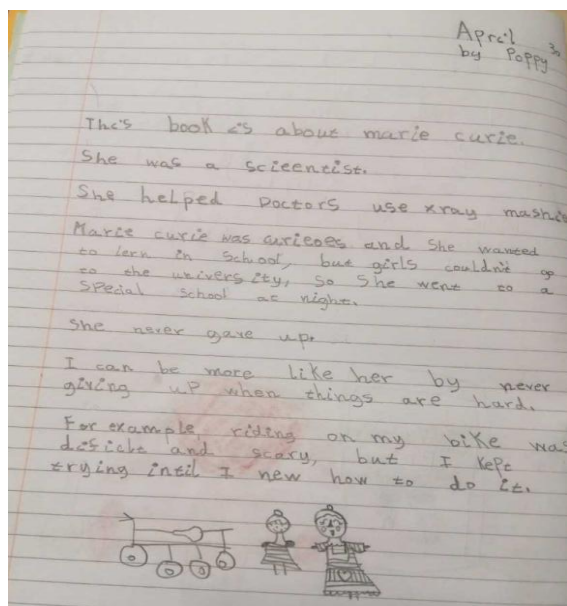 April 30
by Poppy
This book is about marie curie.
She was a scieentist.
She helped Doctors use xray mashi
Marie curie was curieoes and She wanted
to lern in School, but girls couldn't go
to the university, so She went to a
Special School at night.
She never gave up.
I can be more like her by never
giving up when things are hard.
For example, riding on my bike was
and scary, but I kept
trying intil I new how to do it.